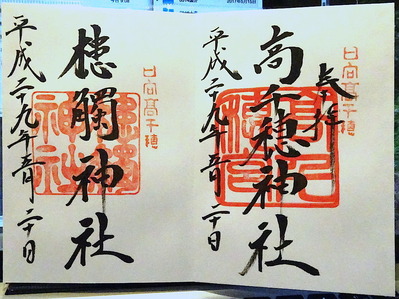 奉拝
日向高千穂
高千穂神社
平成二十九年五月二十日
日向高千穂
槵觸神社
平成二十九年五月二十日